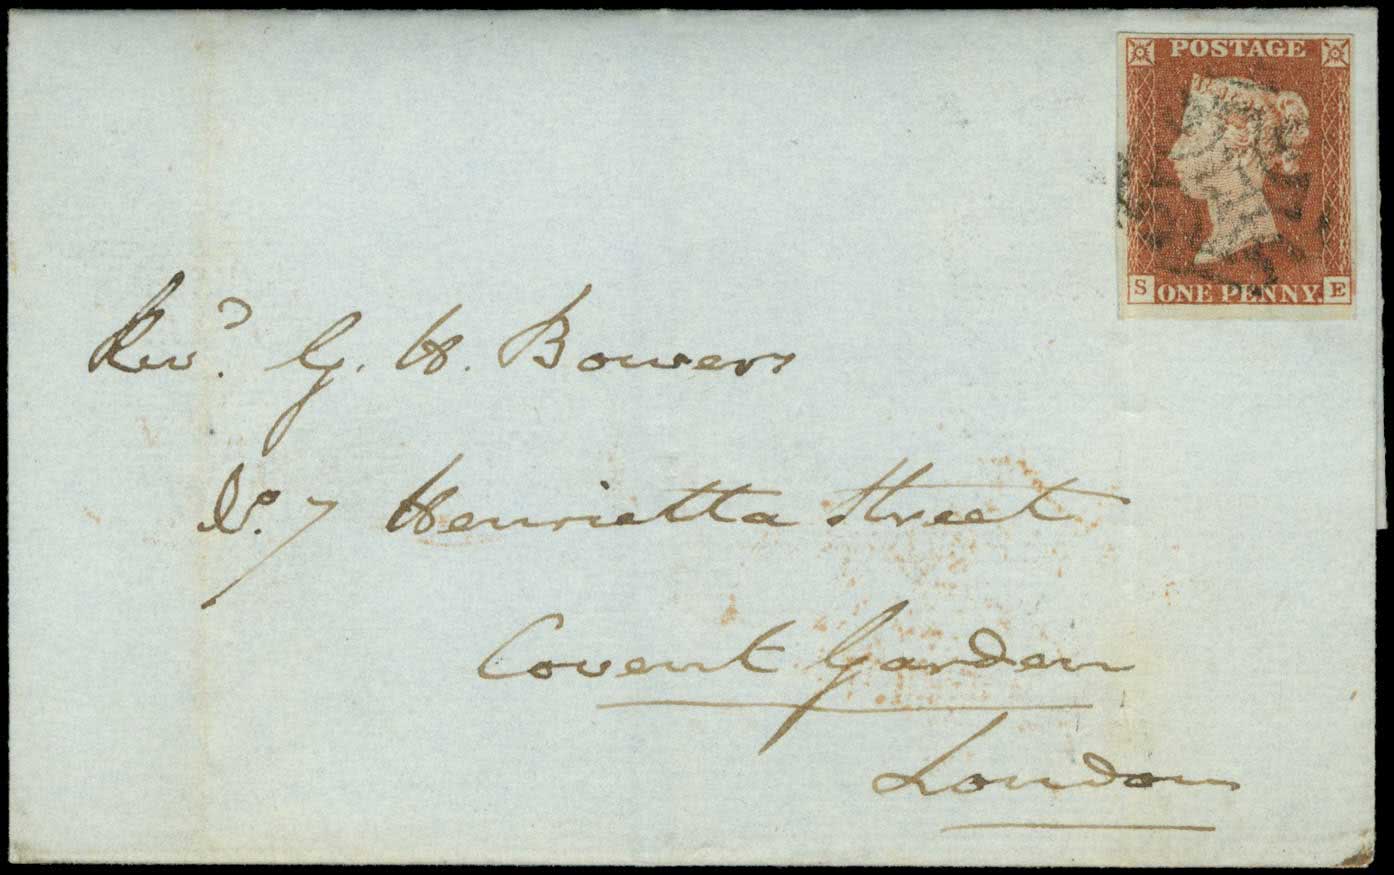 POSTAGE
S ONE PENNY. E
Revd. G. H. Bowers
No. 7 Henrietta Street
Covent Garden
London